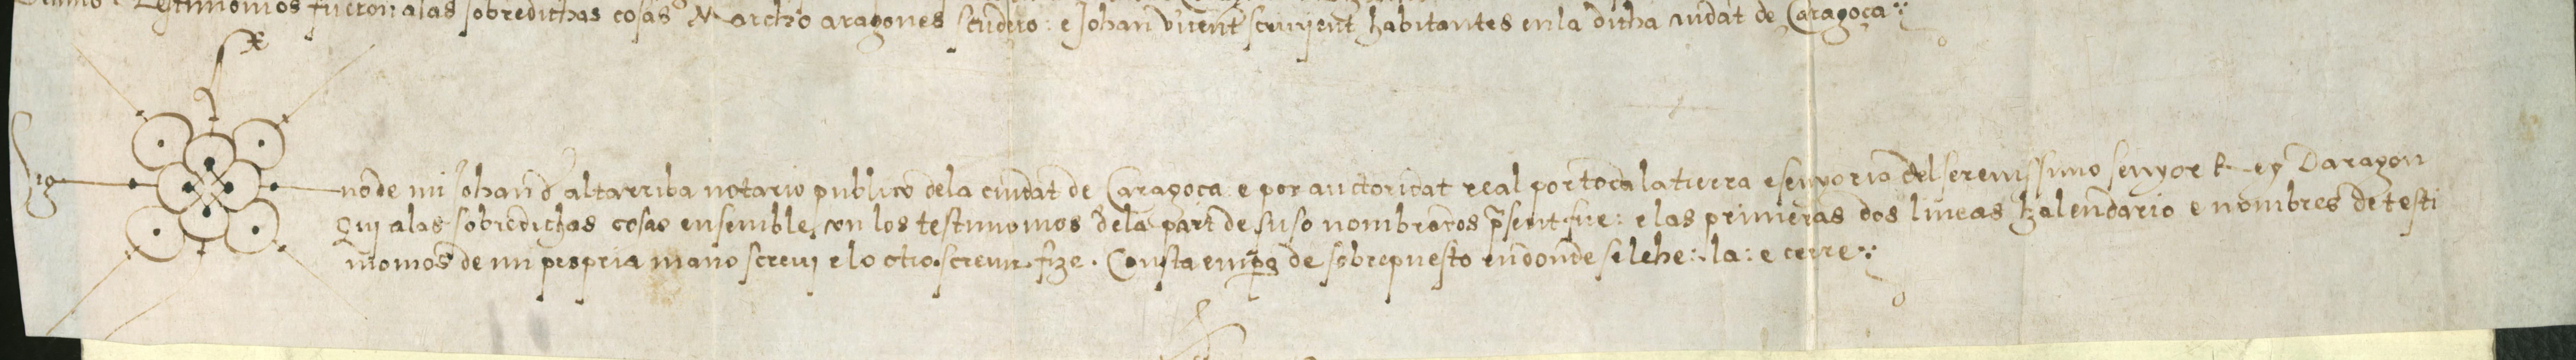 Testimonios fueron alas sobredichas cosas Marcho aragones scudero : e Johan vicent scrivient habitantes en la dicha ciudat de Caragoça
Sig
no de mi Johan d altarriba notario publico dela ciudat de Caragoça e por auctoridat real por toda la tierra e senyoria del serenissimo senyor Rey Daragon
Qui alas sobredichas cosas ensemble con los testimonios dela part de suso nombrados psent fue : e las primeras dos lineas kalendario e nombres de testi
monios de mi propria mano screui e lo otro screuir fize . Consta empo de sobrepuesto en donde se lehe : la : e cerre